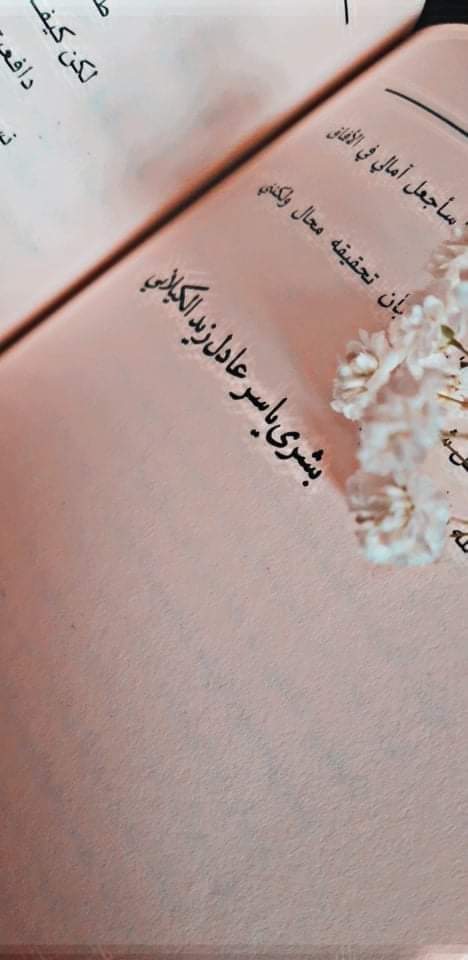 لكن كيف
سأجعل أمالي في الأفاق
بأن تحقيقه محال ولكنني
بشرى ياسر عادل زيد الكيلاني